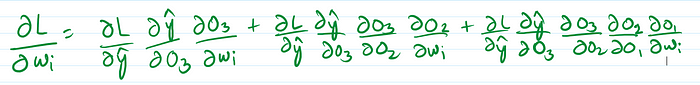 ∂L/∂wi = ∂L/∂ŷ ∂ŷ/∂O3 ∂O3/∂wi + ∂L/∂ŷ ∂ŷ/∂O3 ∂O3/∂O2 ∂O2/∂wi + ∂L/∂ŷ ∂ŷ/∂O3 ∂O3/∂O2 ∂O2/∂O1 ∂O1/∂wi